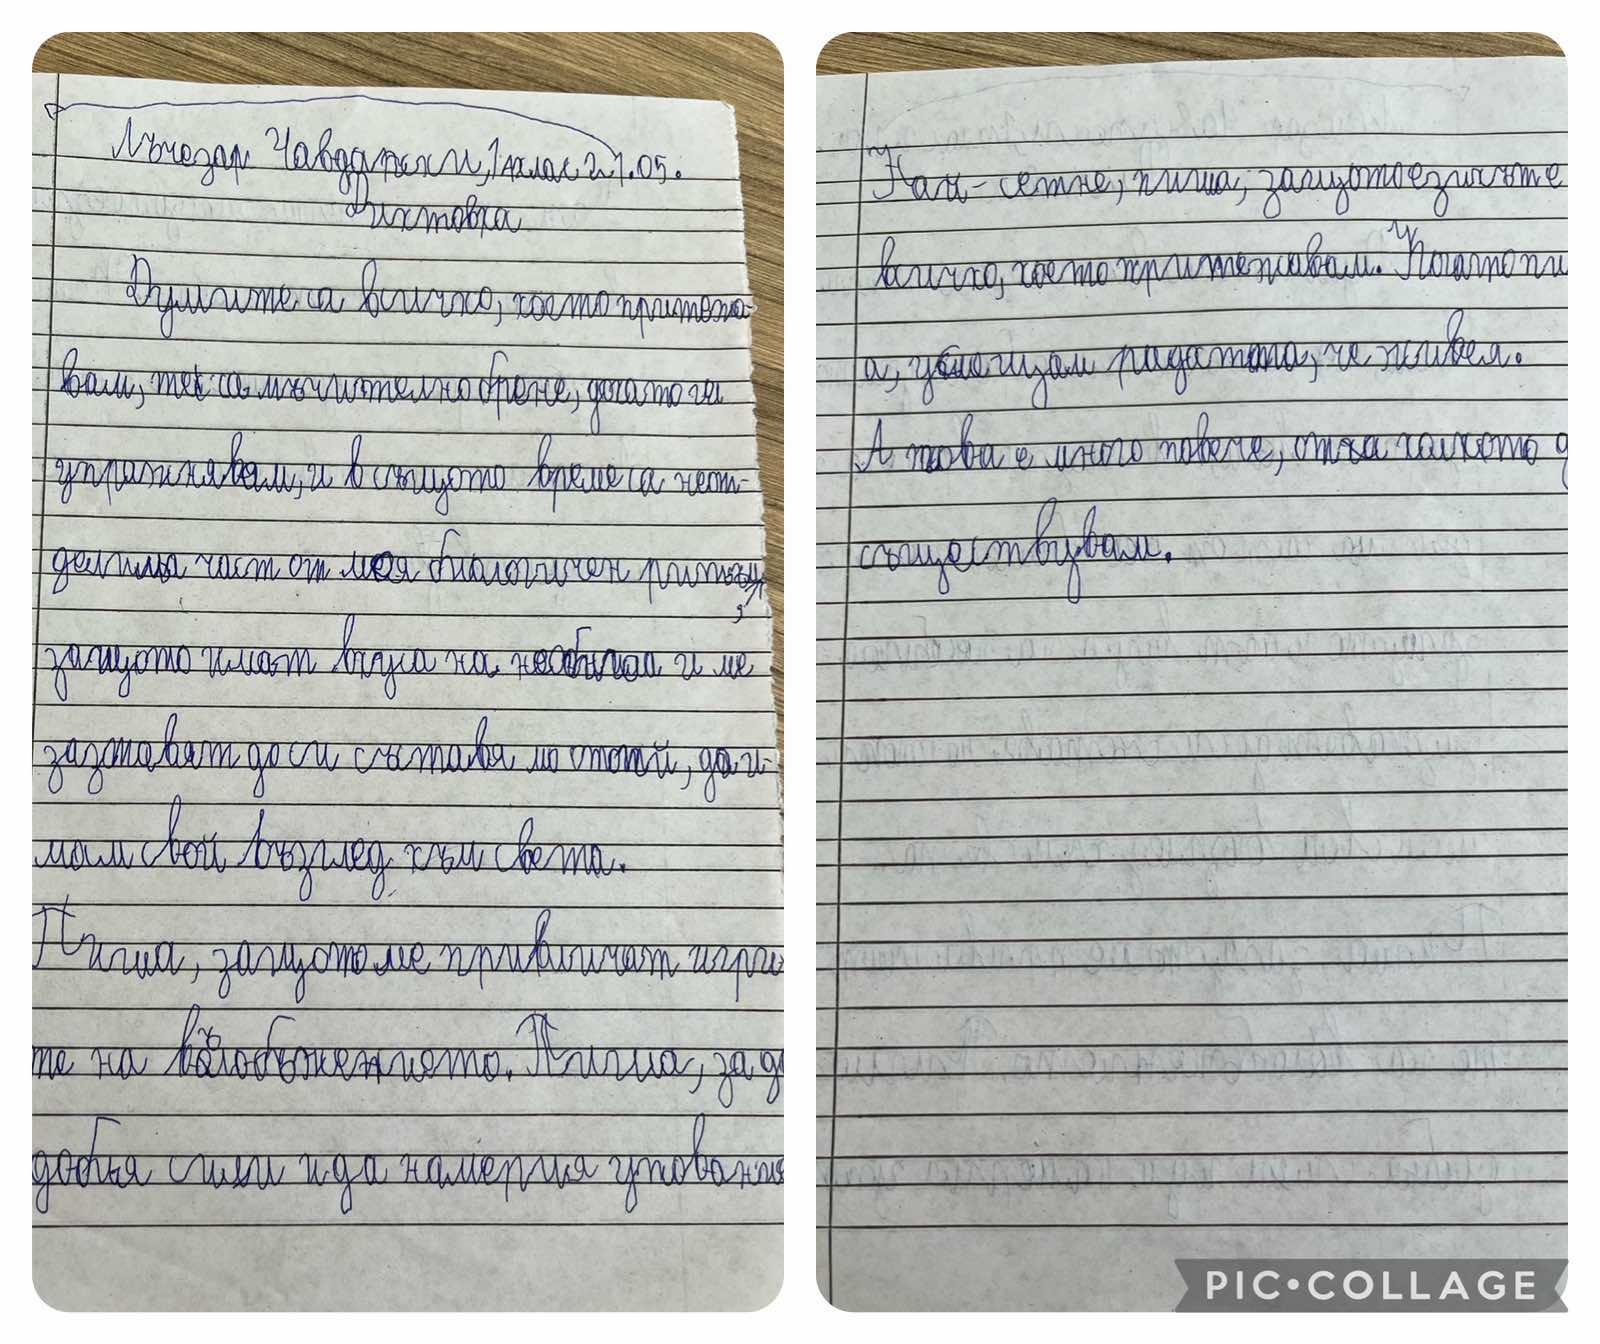 Лъчезар Чавдарски, 1 клас 21.05.
Диктовка
Думите са всичко, което притежа-
вам, тес са мъчителнобреме, докато ги
упражнявам, и в същото време са неот-
делима част от моя биологичен ритъм,
защото имат вкуса на необятаа и ме
заставят да си съставя мостотй, да и-
мам свой възглед към света.
Пиша, защото ме привличат игри
те на въображението. Пиша, за да
добъя сили и да намеря упования
Най-сетне, пиша, защото езикът е
всичко, което притежавам. Когато пи
а, усещам радостта, че живея.
А това е много повече, отка колкото д
съществувам.
PIC•COLLAGE